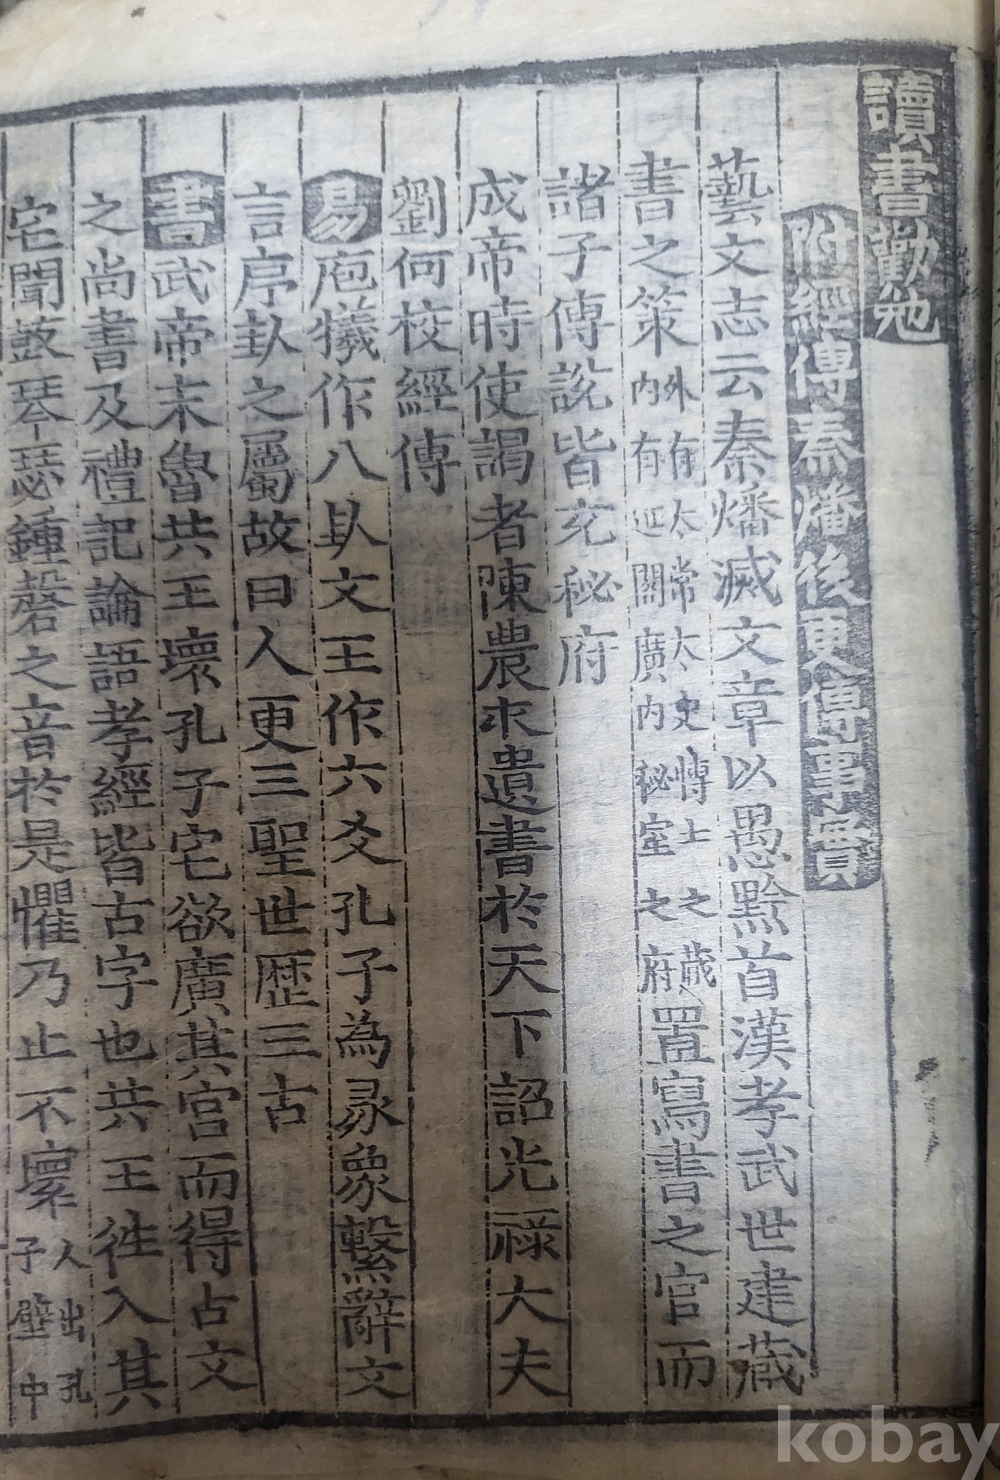 讀書勸勉
附經傳秦燔後更傳事實
藝文志云秦燔滅文章以愚黔首漢孝武世建藏
書之策外有太常太史博士之藏內有延閣廣內秘室之府置寫書之官而
諸子傳說皆充秘府
成帝時使謁者陳農求遺書於天下詔光禄大夫
劉向校經傳
易庖犧作八卦文王作六爻孔子為彖象繫辭文
言序卦之屬故曰人更三聖世歷三古
書武帝末魯共王壞孔子宅欲廣其宮而得古文
之尚書及禮記論語孝經皆古字也共王徃入其
宅聞鼓琴瑟鍾磬之音於是懼乃止不壞人出孔子壁中
kobay